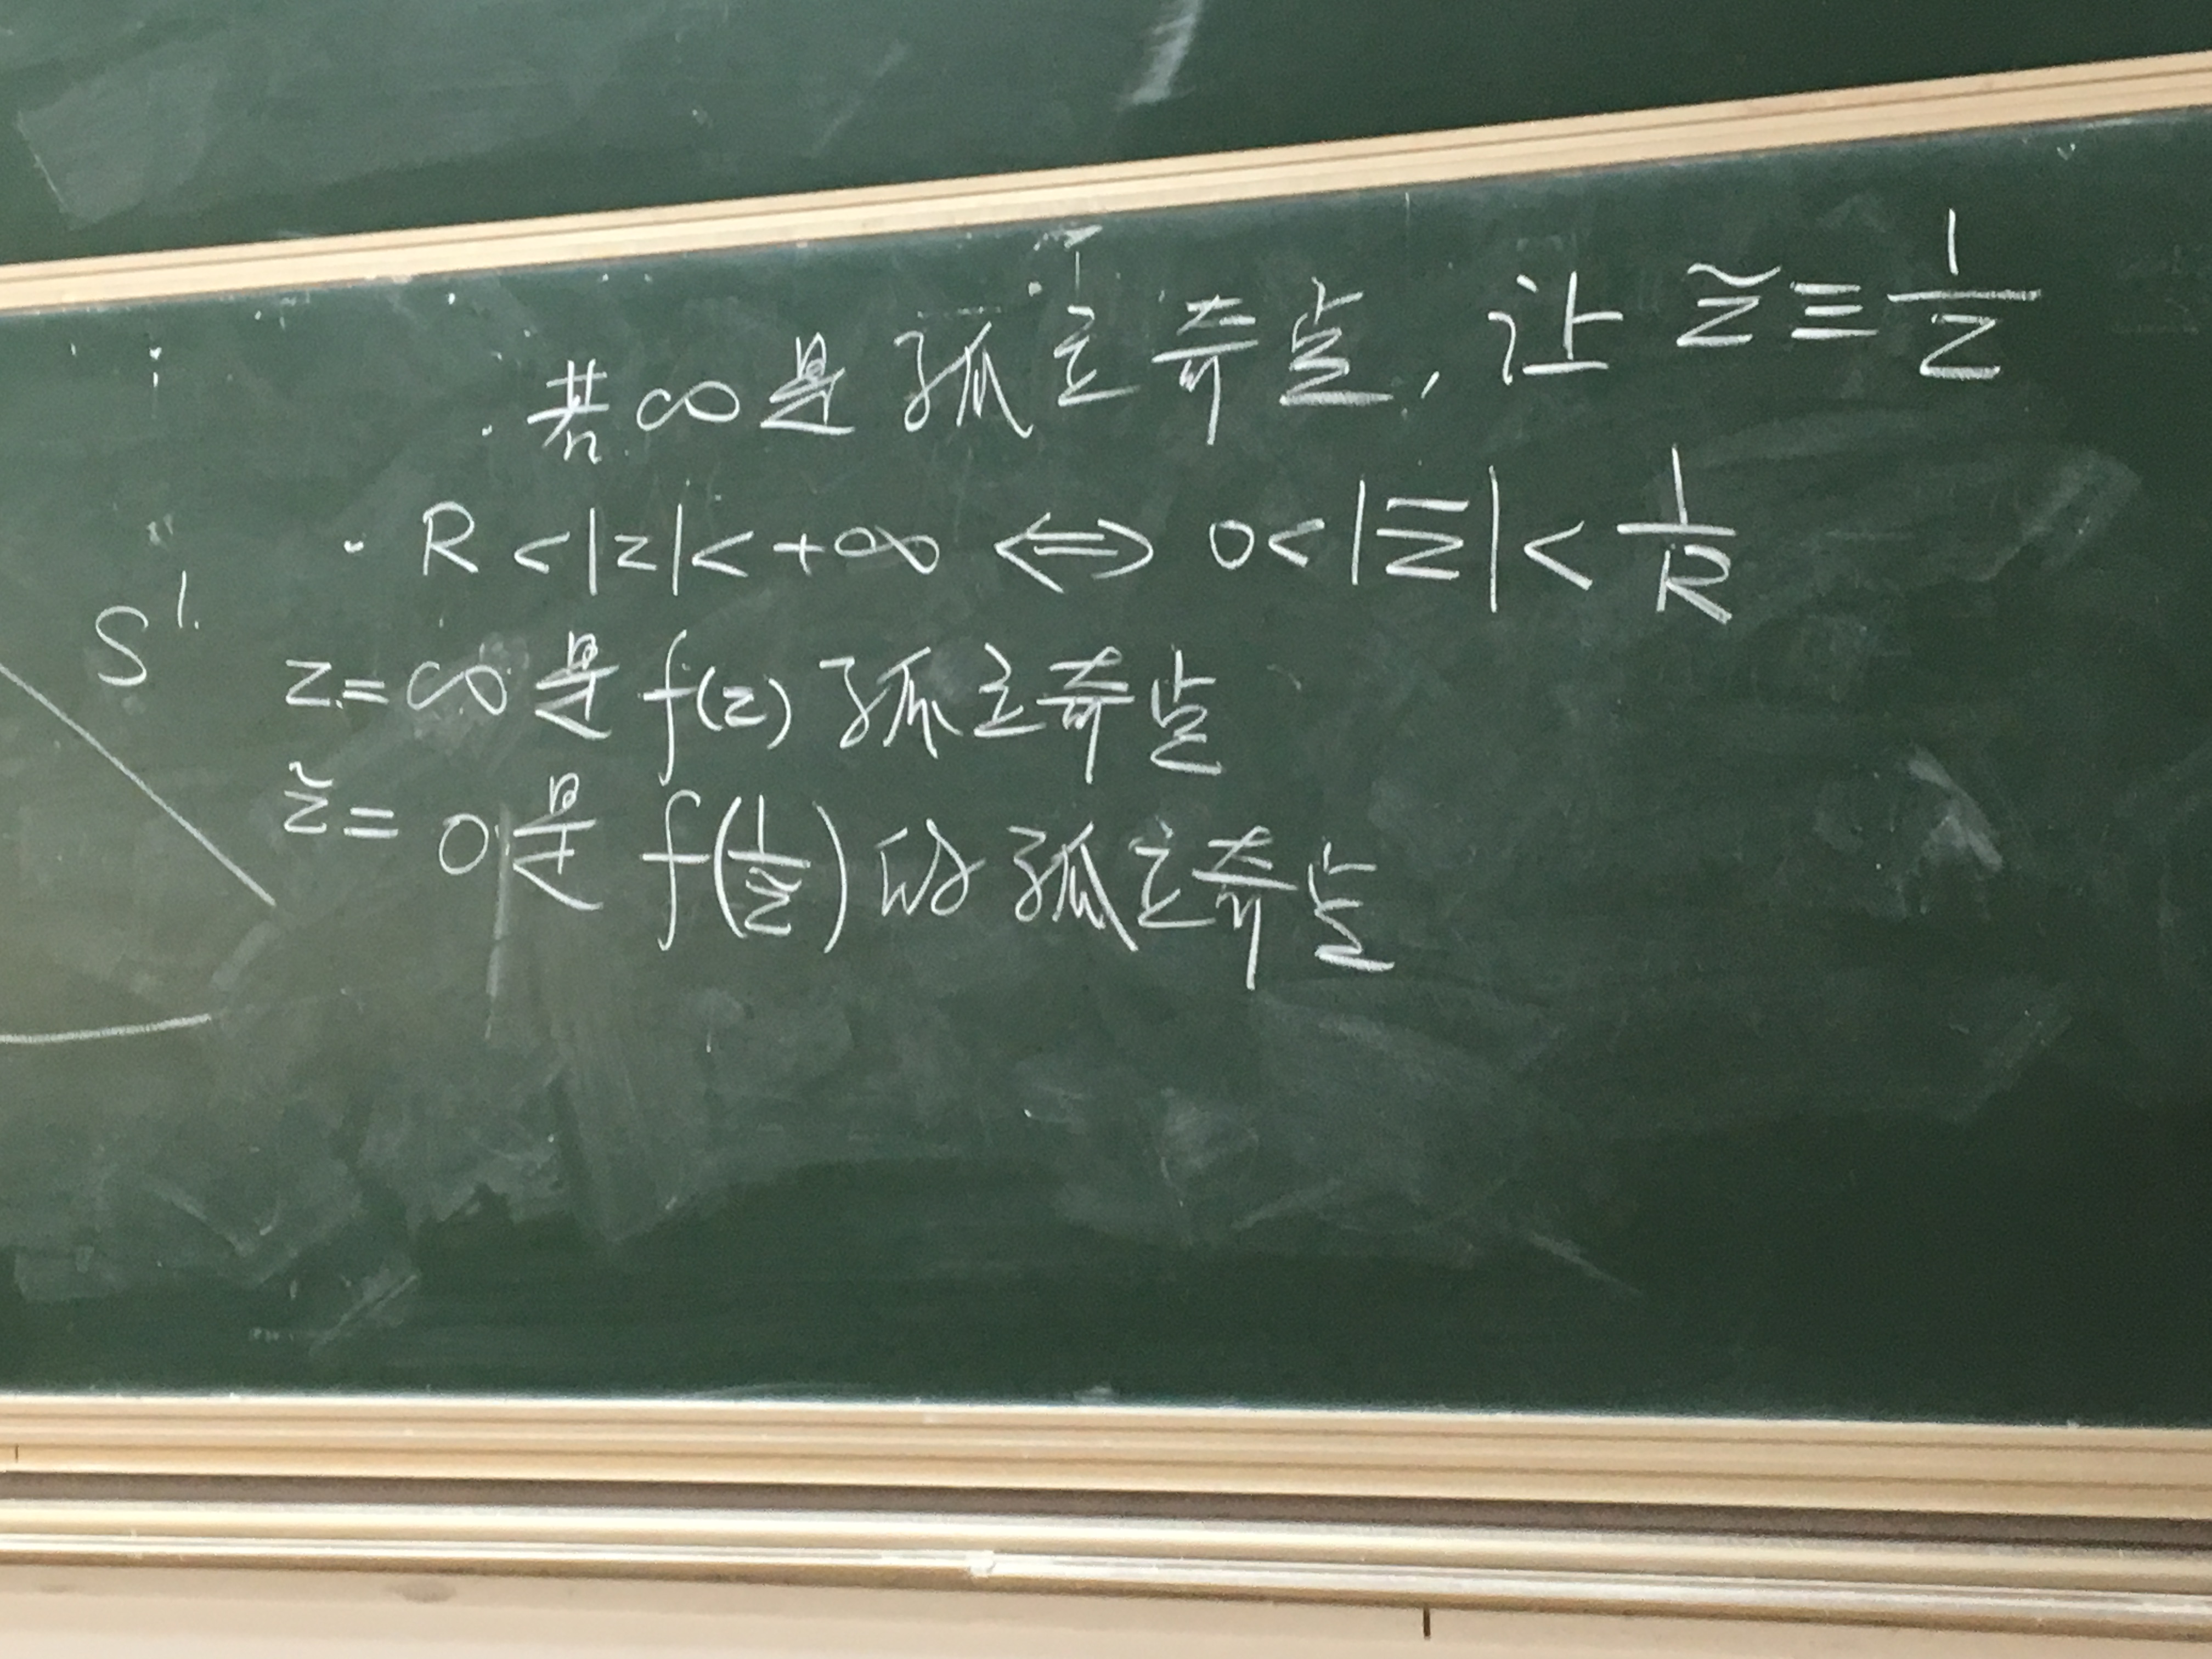 · 若∞是孤立奇点, 让 z̃ ≡ 1/z
· R < |z| < +∞ ⟺ 0 < |z̃| < 1/R
S¹
z = ∞ 是 f(z) 孤立奇点
z̃ = 0 是 f(1/z̃) 的孤立奇点